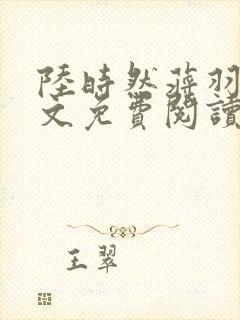 陸時然蔣羽
文免費閱讀
王翠